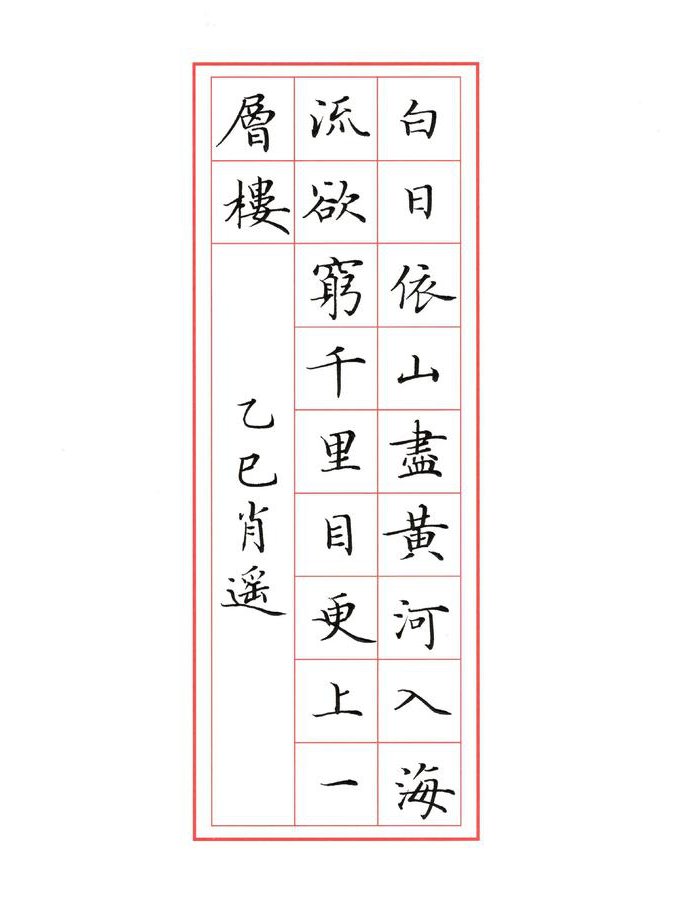 白日依山盡黃河入海
流欲窮千里目更上一
層樓
乙巳肖遥